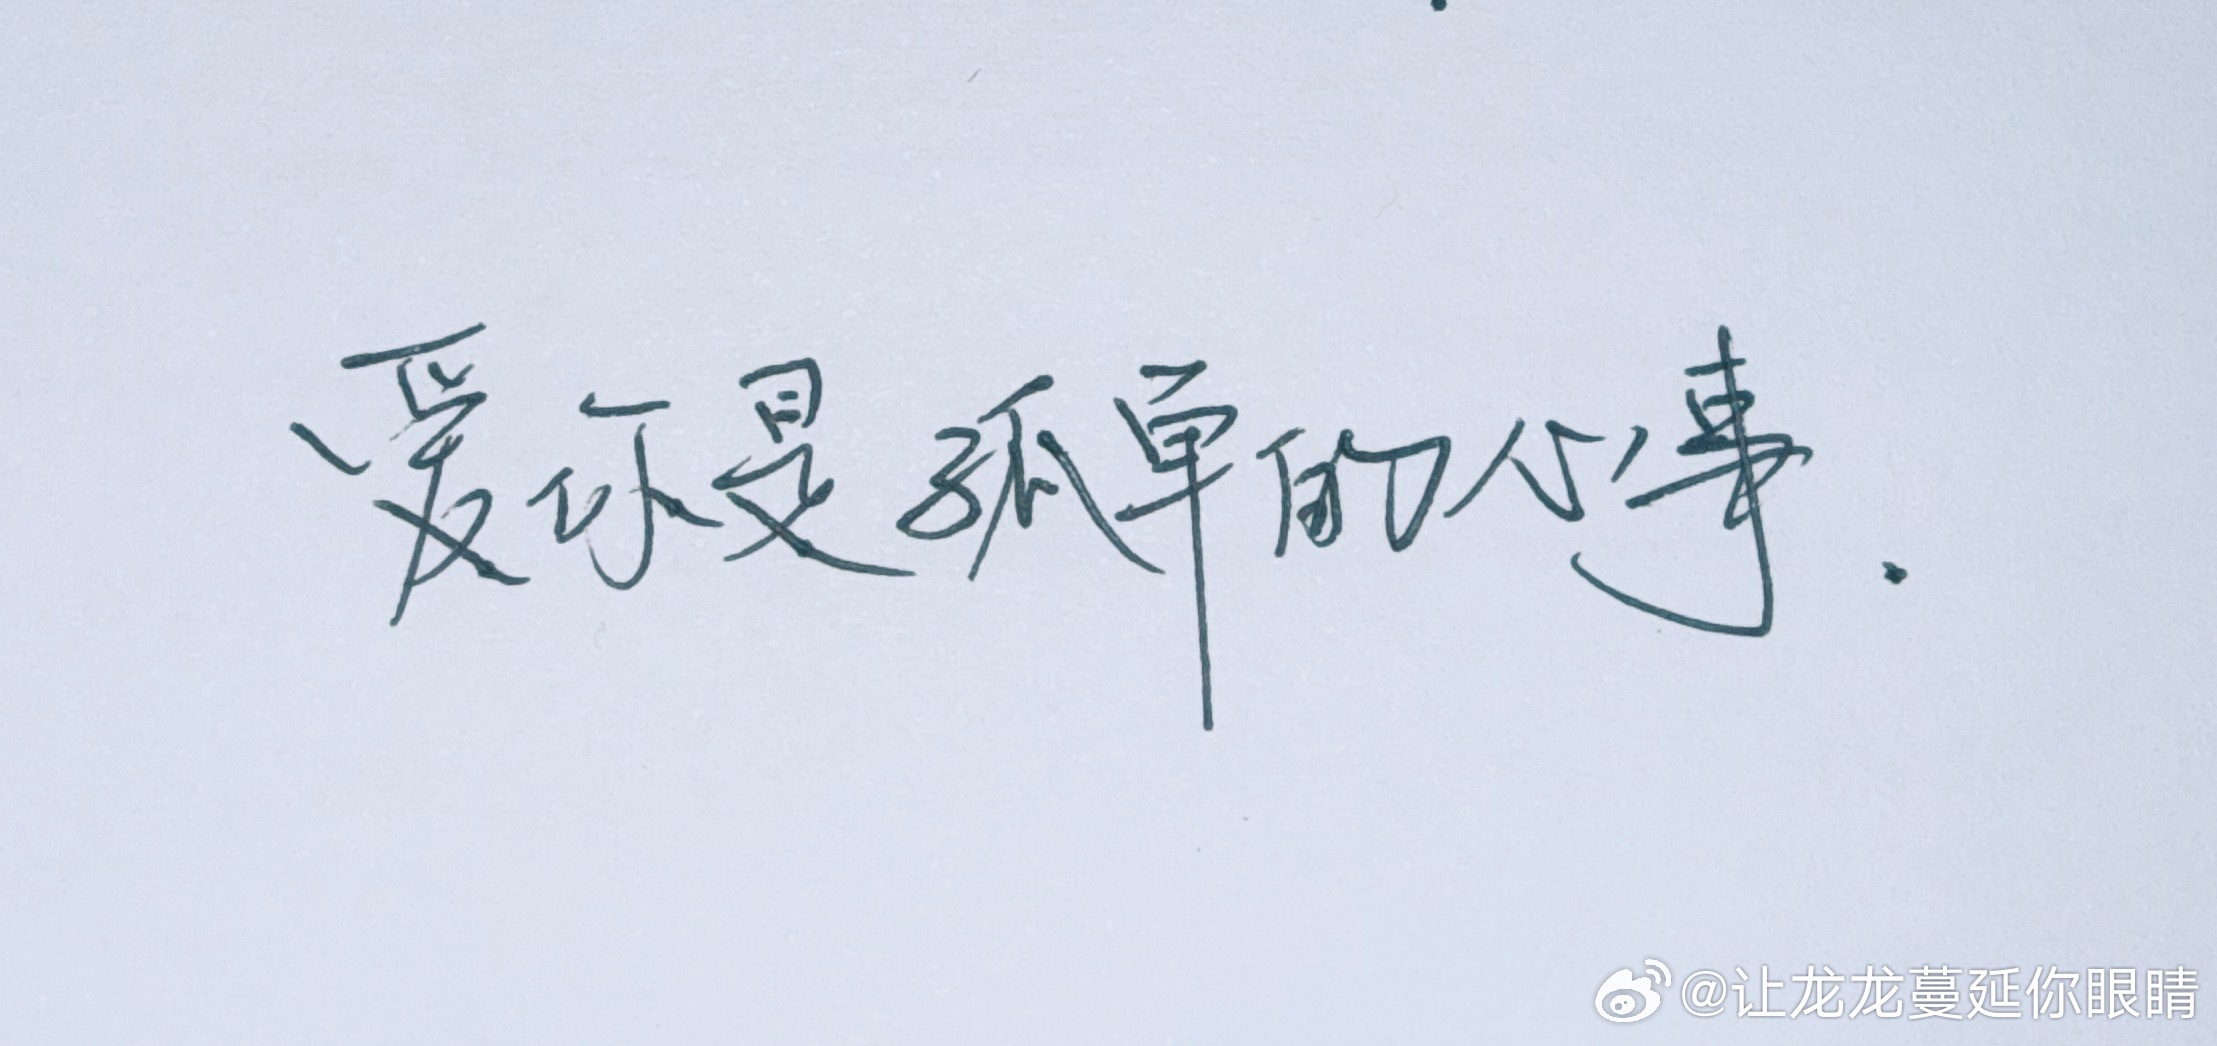 爱你是孤单的心事.
@让龙龙蔓延你眼睛